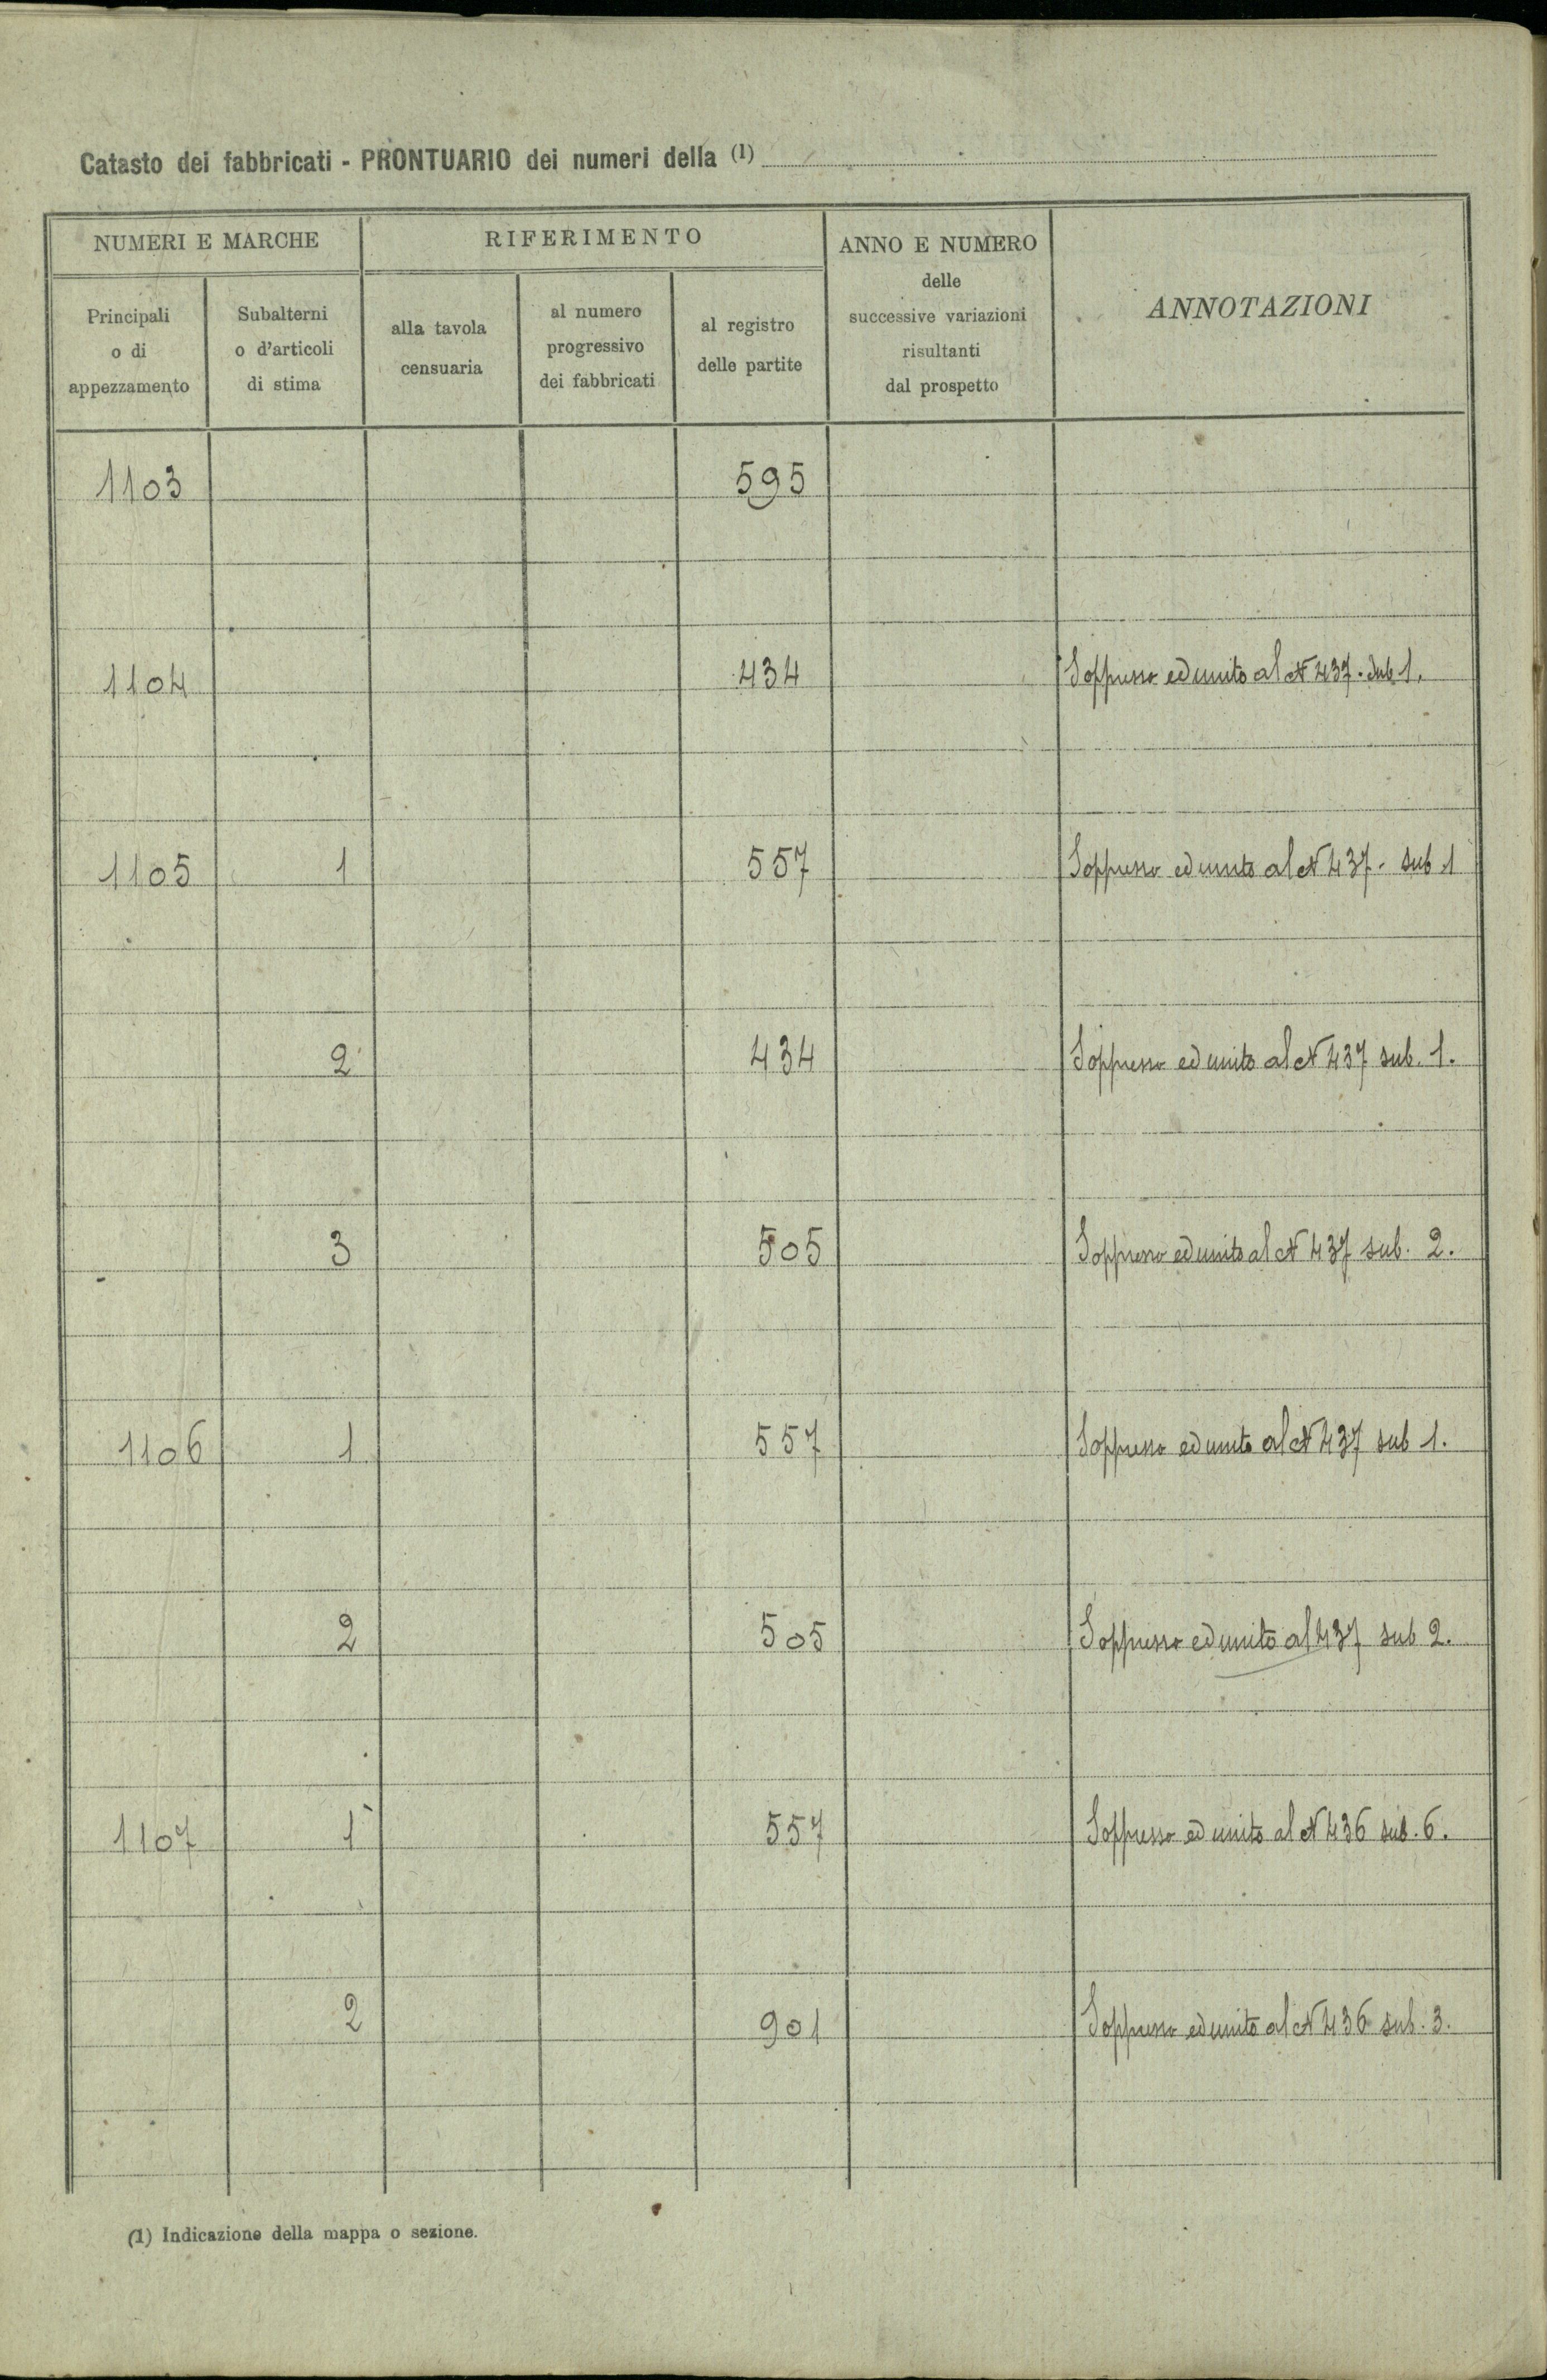 Catasto dei fabbricati - PRONTUARIO dei numeri della (1)
NUMERI E MARCHE
RIFERIMENTO
ANNO E NUMERO
delle
successive variazioni
risultanti
dal prospetto
ANNOTAZIONI
Principali
o di
appezzamento
Subalterni
o d'articoli
di stima
alla tavola
censuaria
al numero
progressivo
dei fabbricati
al registro
delle partite
1103 595
1104 434 Soppresso ed unito al N 437. sub 1.
1105 1 557 Soppresso ed unito al N 437 - sub 1
2 434 Soppresso ed unito al N 437 sub. 1.
3 505 Soppresso ed unito al N 437 sub. 2.
1106 1 557 Soppresso ed unito al N 437 sub 1.
2 505 Soppresso ed unito al 437 sub 2.
1107 1 557 Soppresso ed unito al N 436 sub. 6.
2 901 Soppresso ed unito al N 436 sub. 3.
(1) Indicazione della mappa o sezione.